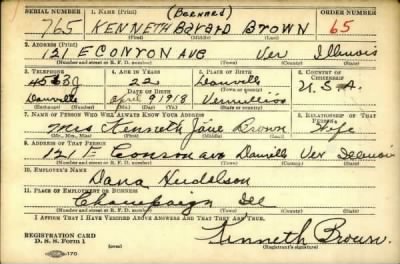 SERIAL NUMBER 1. NAME (Print) ORDER NUMBER
(Bernard)
765 KENNETH Bavard BROWN 65
(First) (Middle) (Last)
2. ADDRESS (Print)
121 E CONRON AVE Ver Illinois
(Number and street or R. F. D. number) (Town) (County) (State)
3. TELEPHONE 4. AGE IN YEARS 5. PLACE OF BIRTH 6. COUNTRY OF CITIZENSHIP
22 Danville
DATE OF BIRTH
Danville April 9 1918 U.S.A.
(Exchange) (Mo.) (Day) (Yr.) (State or country)
7. NAME OF PERSON WHO WILL ALWAYS KNOW YOUR ADDRESS 8. RELATIONSHIP OF THAT PERSON
Mrs Kenneth Jane Brown Wife
(Mr., Mrs., Miss) (First) (Middle) (Last)
9. ADDRESS OF THAT PERSON
121 E Conron ave Danvill Ver
(Number and street or R. F. D. number) (Town) (County) (State)
10. EMPLOYER'S NAME
Dana
11. PLACE OF EMPLOYMENT OR BUSINESS
Champaign Ill
(Number and street or R. F. D. number) (Town) (County) (State)
I AFFIRM THAT I HAVE VERIFIED ABOVE ANSWERS AND THAT THEY ARE TRUE.
REGISTRATION CARD
D. S. S. Form 1
Kenneth Brown
(Registrant's signature)